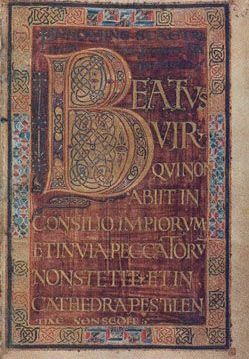 BEATVS
VIR
QVINON
ABIIT IN
CONSILIO IMPIORVM
ET IN VIA PECCATORV
NON STETIT ET IN
CATHEDRA PESTILEN